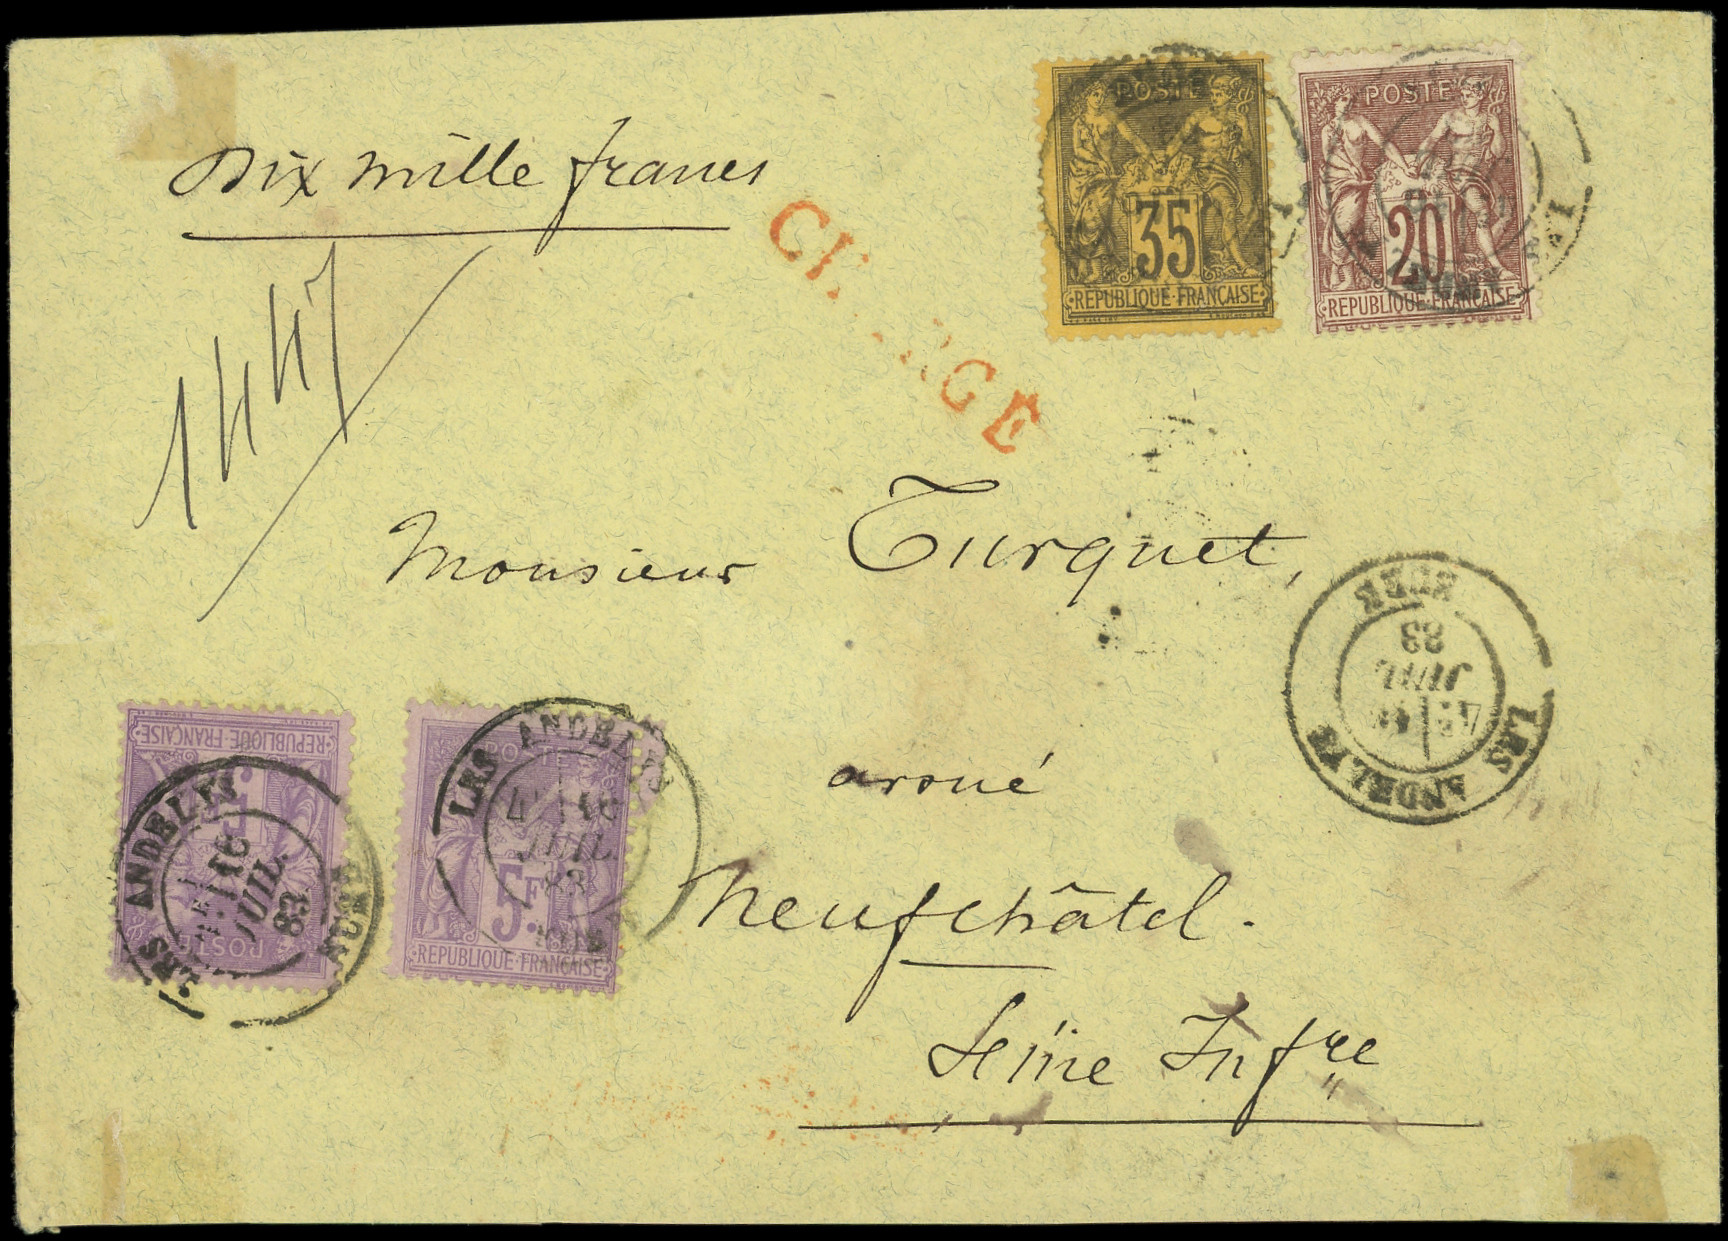 Dix mille francs
1447
CHARGE
POSTE
35
REPUBLIQUE FRANÇAISE
POSTE
20
REPUBLIQUE FRANÇAISE
Monsieur Turquet,
avoué
Neufchâtel.
Seine Infre
LES ANDELYS
JUIL
83
EURE
REPUBLIQUE FRANÇAISE
POSTE
LES ANDELYS
JUIL
83
EURE
POSTE
5F
REPUBLIQUE FRANÇAISE
LES ANDELYS
JUIL
83